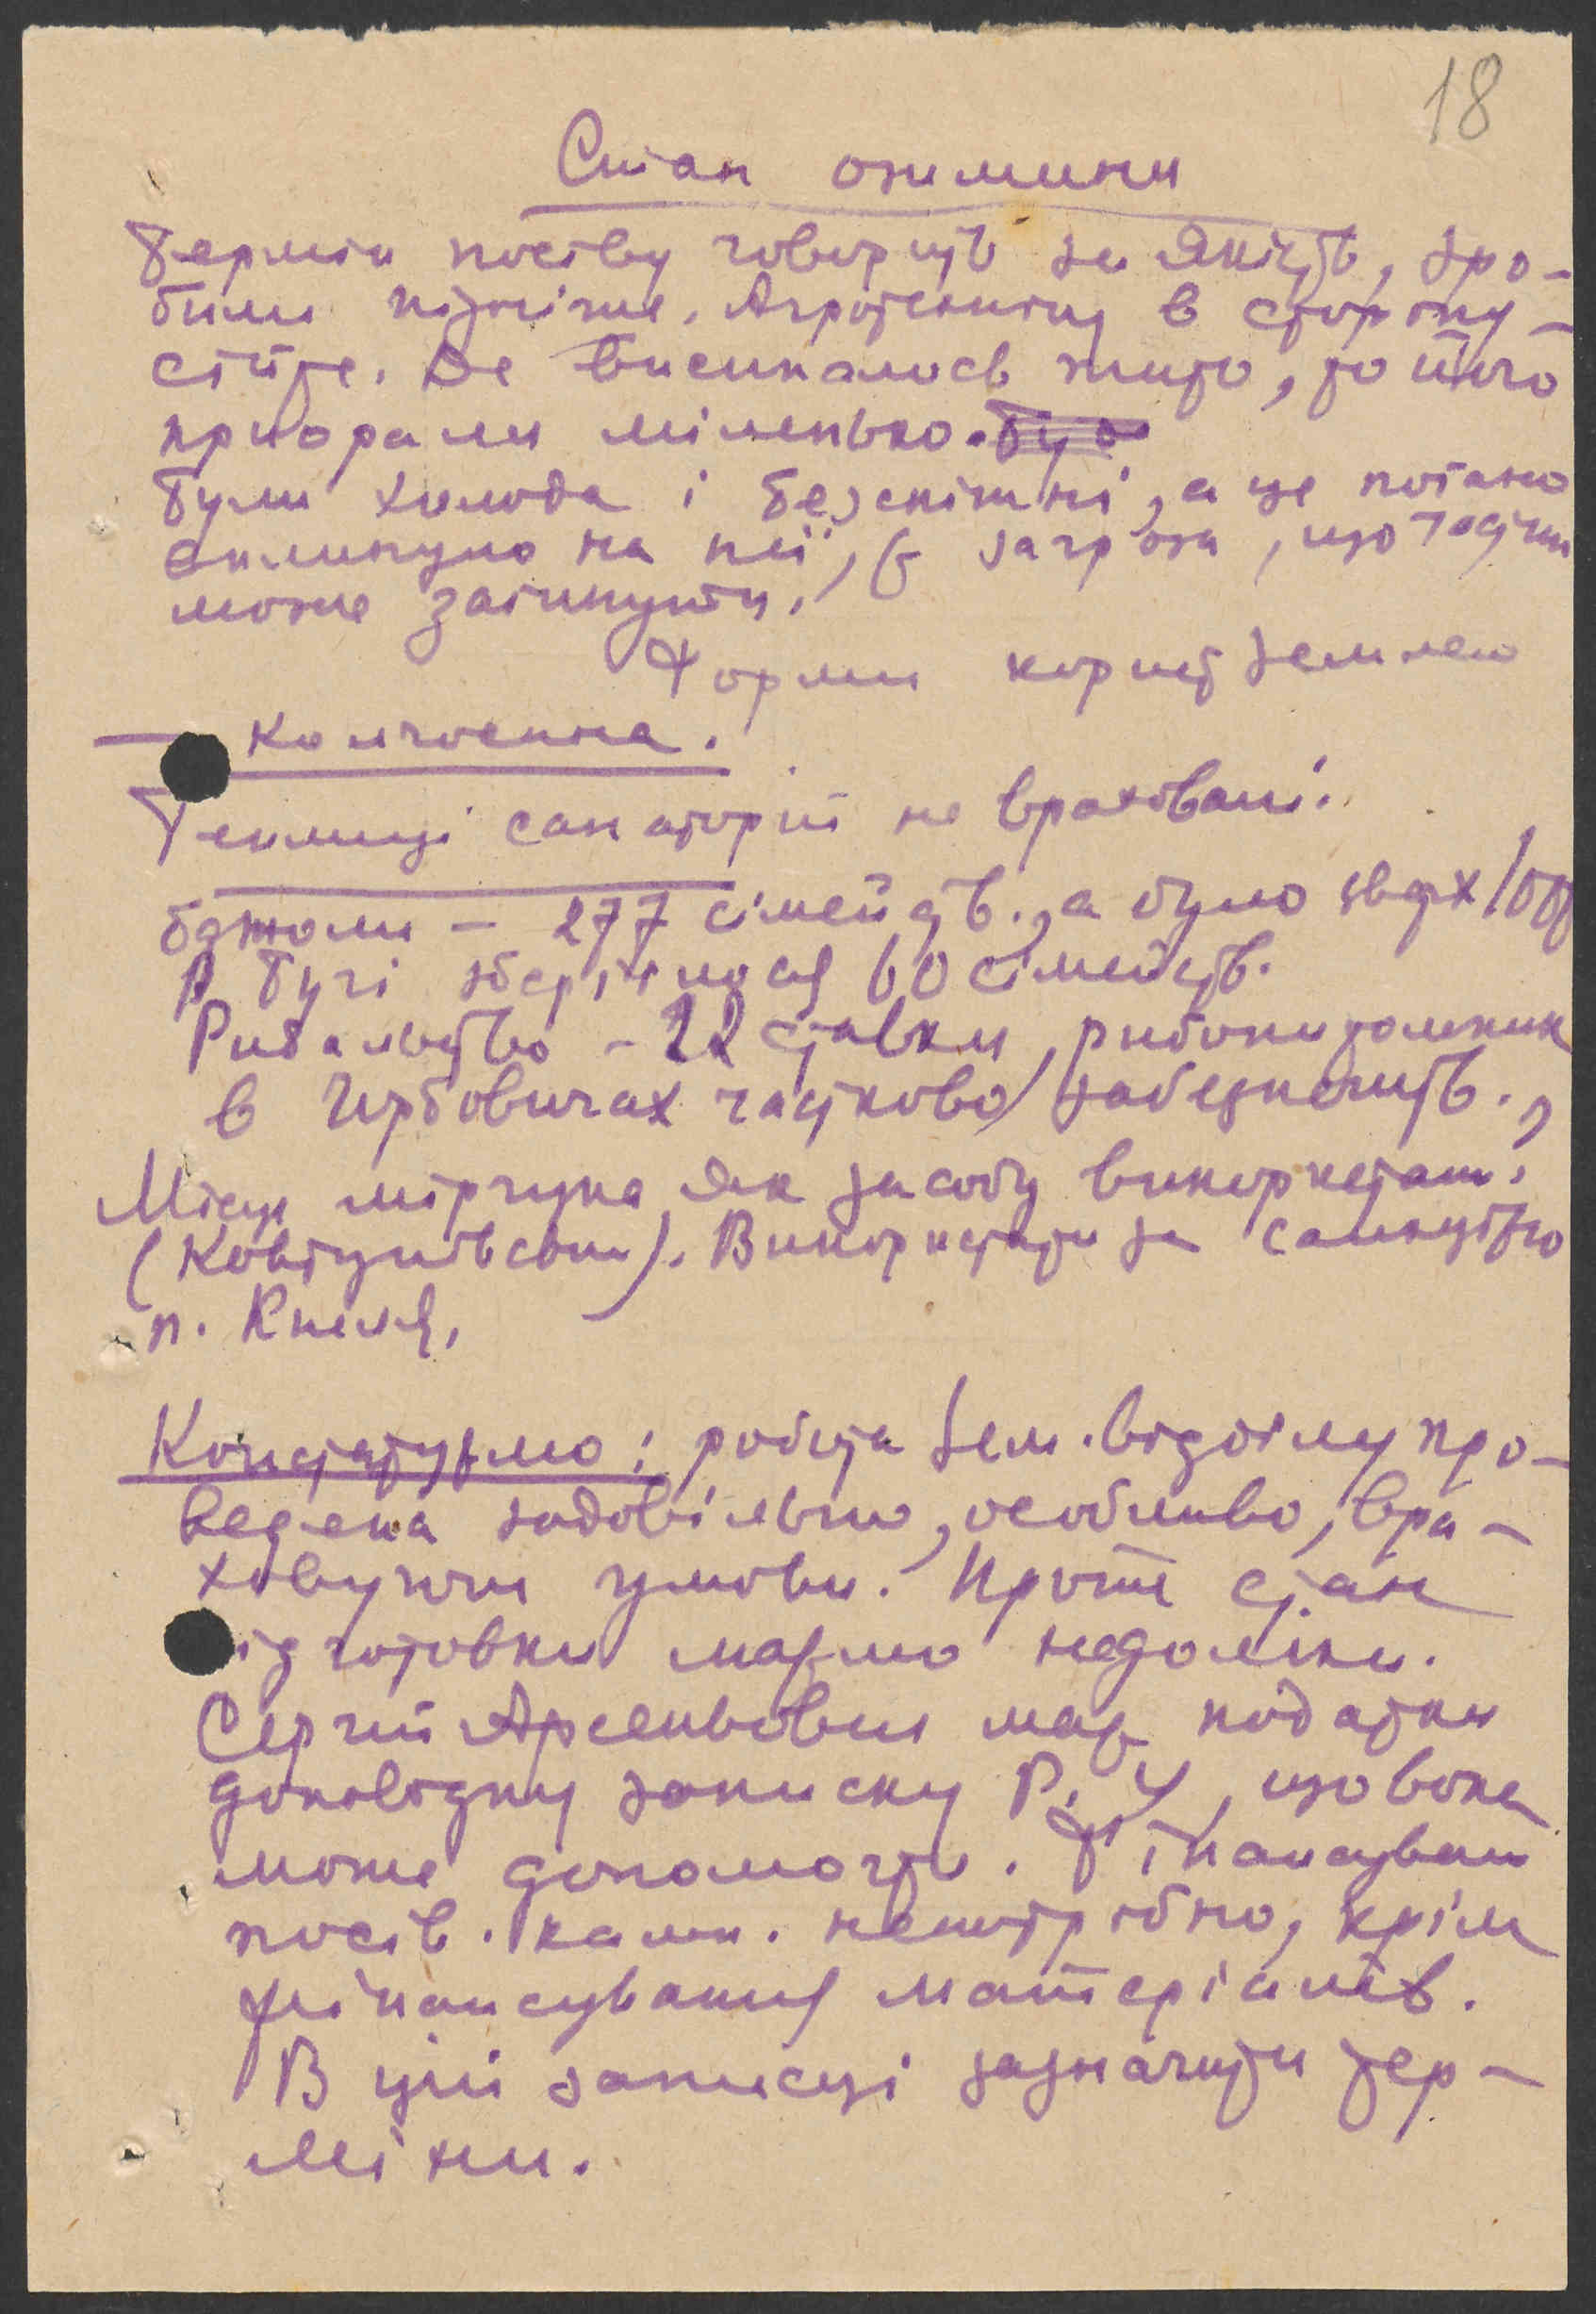 18
Стан озимини
Термін посіву говорить за якість, зро-
били пізніше. Агротехніку в сторону
стійе. Де висипалось жито, то його
приорали міленько. Було
Були холода і безсніжні, а це погано
вплинуло на неї, є загроза, що
може загинути.
Форми корист землею
колгоспна.
Теплиці санаторій не враховані.
бджоли – 277 сімейств., а було
В Бучі зберіглося 60 сімейств.
Рибальство – 22 ставки, рибопитомник
в частково забезпечить.,
Місця мірчука як засобу використані
Використати за
п. Кнеля.
Констатуємо: робота зем. відділу про-
ведена задовільно, особливо, вра-
ховуючи умови. Проте стан
ідготовки маємо недоліки.
Сергій Арсеньович має податки
доповідну записку Р. У, що вона
може допомогти. Фінансувати
посів. камп. непотрібно, крім
фінансування матеріалів.
В цій записці зазначити тер-
міни.